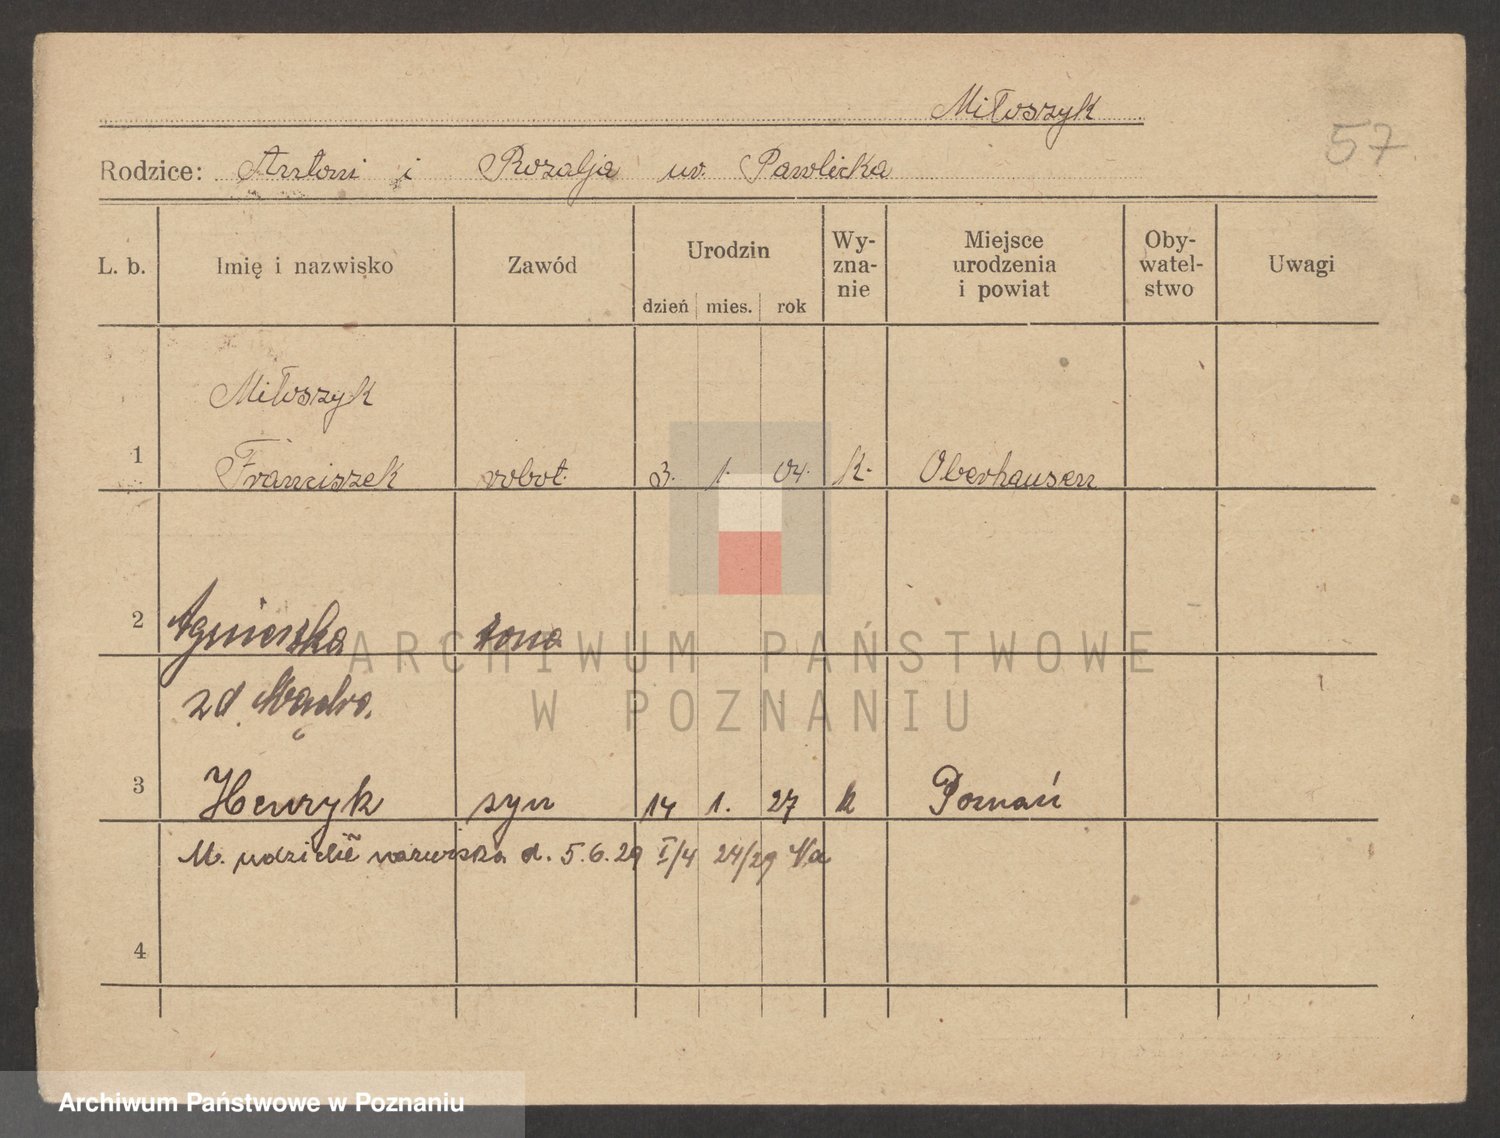 Miłoszyk
57
Rodzice: Antoni i Rozalja ur. Pawlicka
L. b. Imię i nazwisko Zawód Urodzin dzień mies. rok Wy-zna-nie Miejsce urodzenia i powiat Oby-watel-stwo Uwagi
Miłoszyk
1 Franciszek robot. 3. 1. 04. k. Oberhausen
2 Agnieszka żona
zd. Mądra
3 Henryk syn 14 1. 27 k Poznań
M. udzielił nazwiska d. 5.6.29 I/4 24/29
4
ARCHIWUM PAŃSTWOWE
W POZNANIU
Archiwum Państwowe w Poznaniu